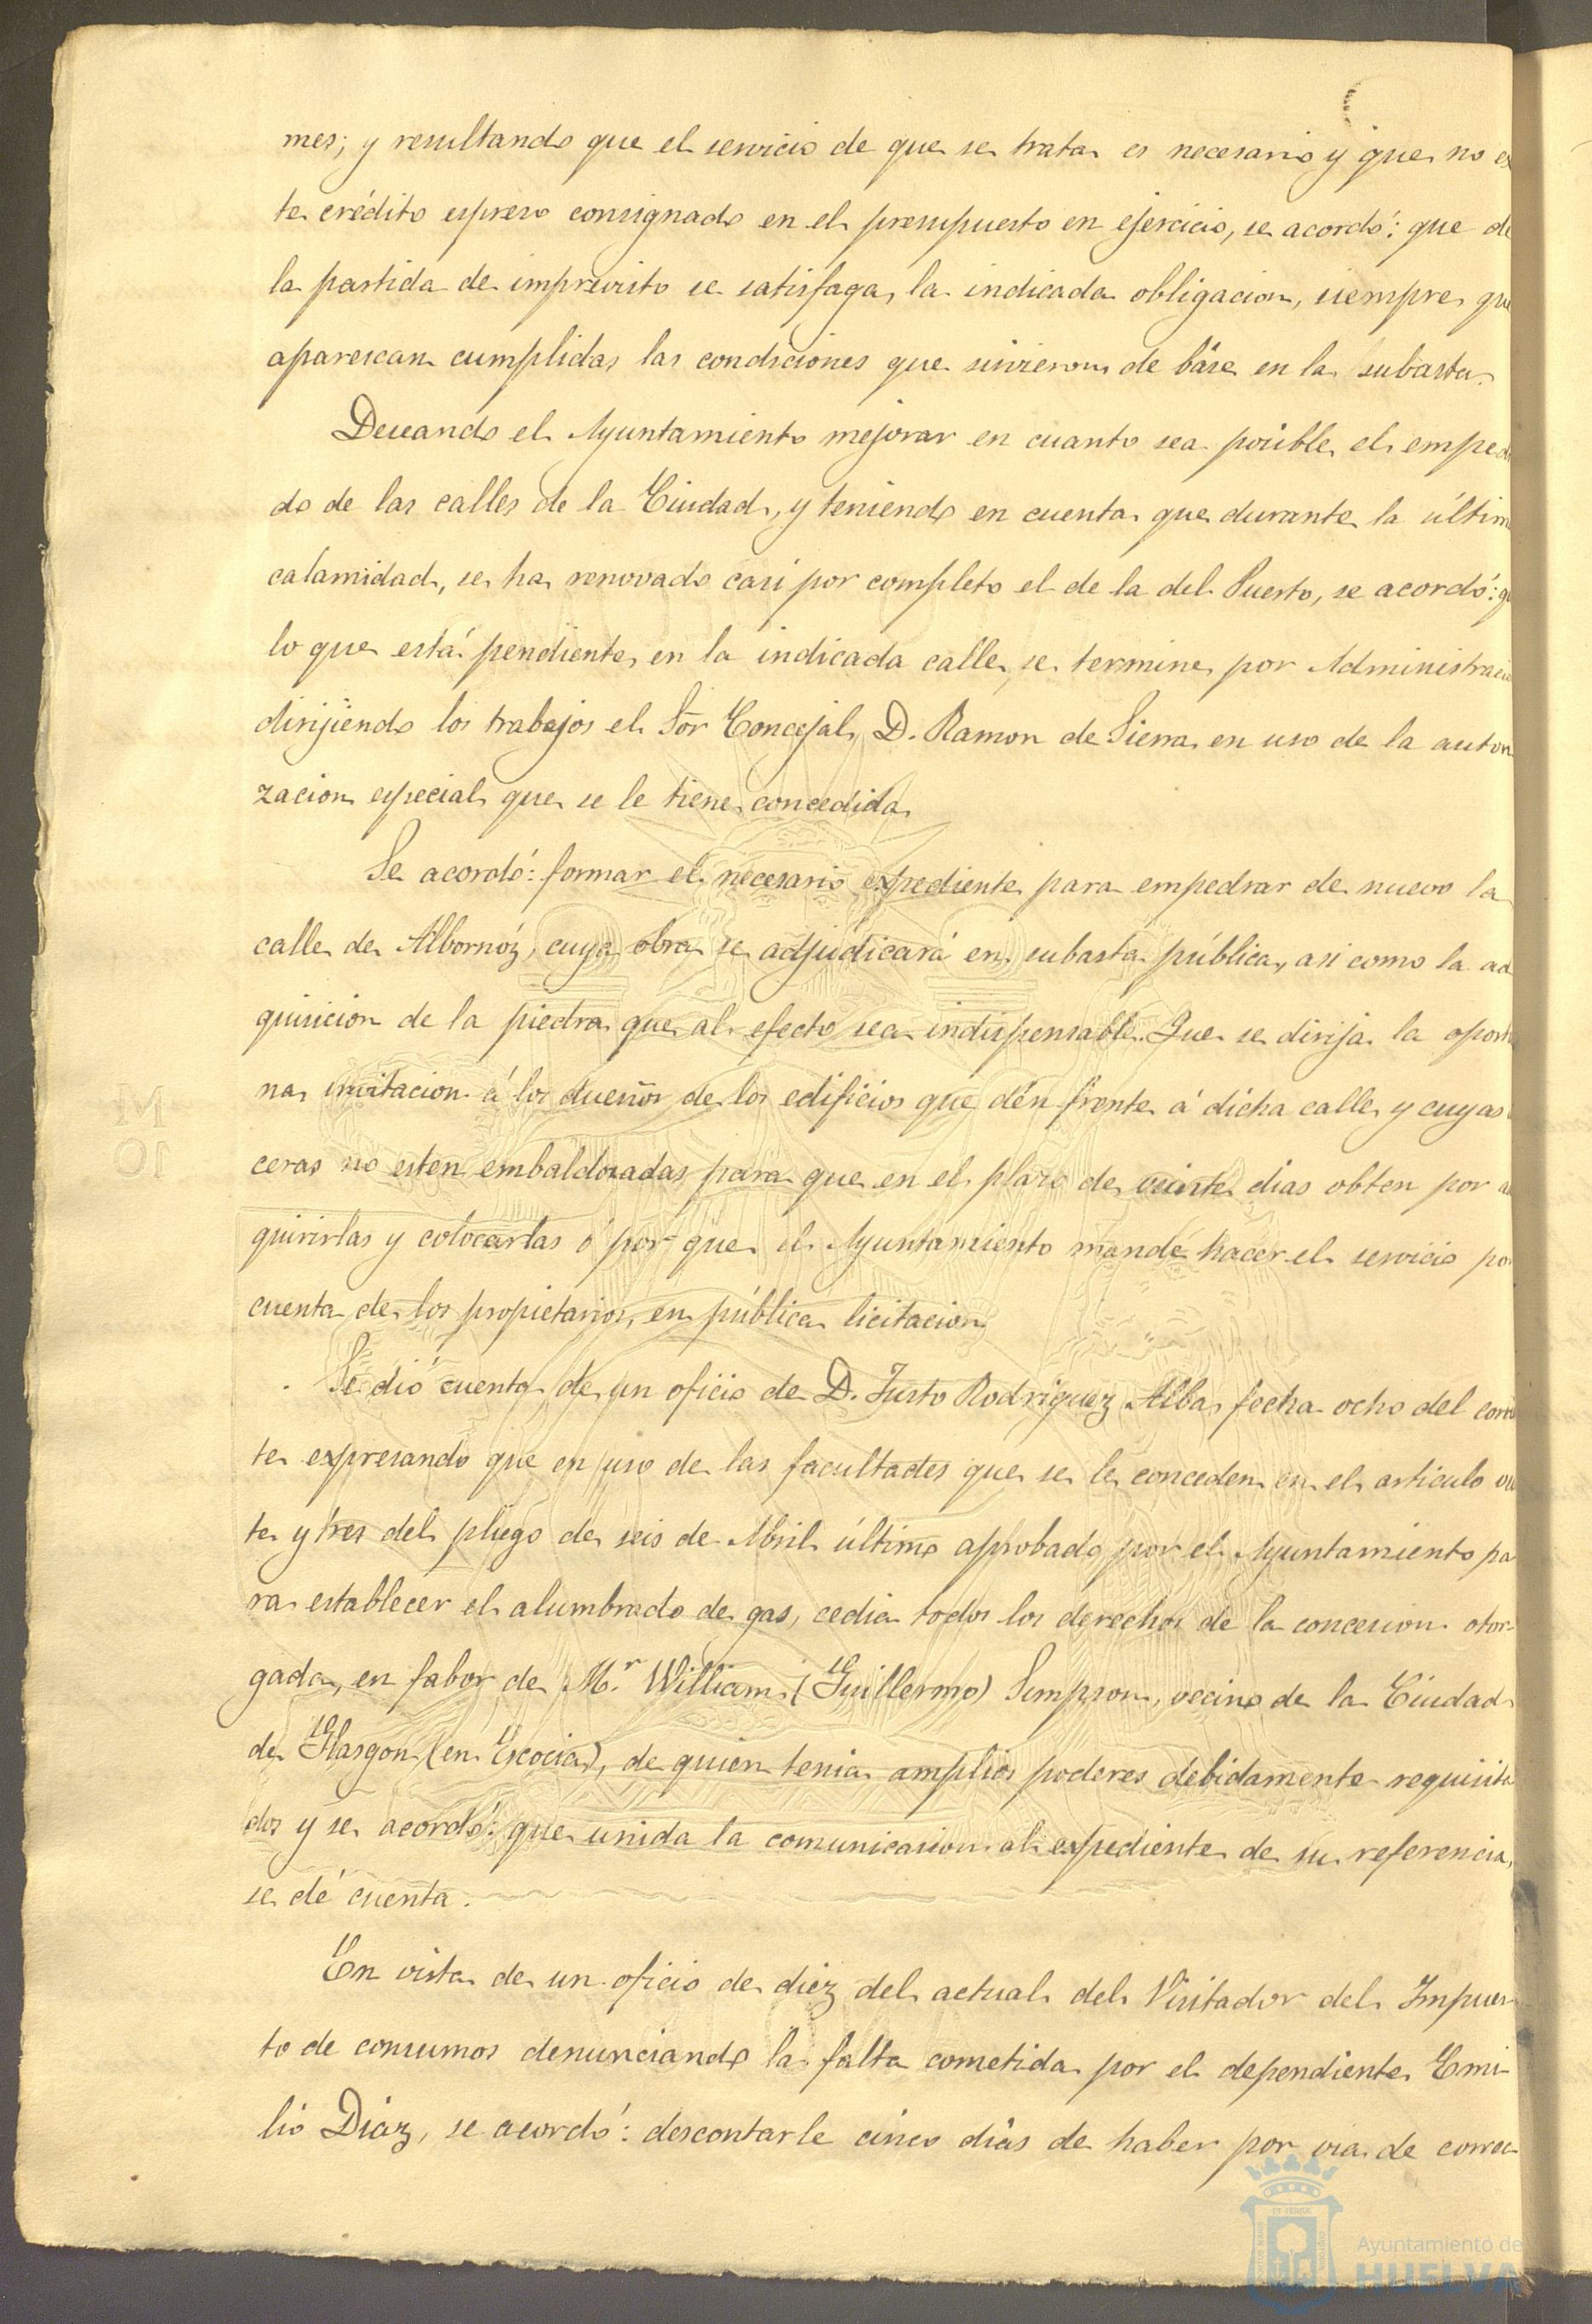 mes; y resultando que el servicio de que se trata es necesario y que no es
te crédito espreso consignado en el presupuesto en ejercicio, se acordó: que de
la partida de imprevisto se satisfaga la indicada obligacion, siempre que
aparescan cumplidas las condiciones que sirvieron de báse en la subasta.
Deseando el Ayuntamiento mejorar en cuanto sea posible el emped
do de las calles de la Ciudad, y teniendo en cuenta que durante la últim
calamidad, se ha renovado casi por completo el de la del Puerto, se acordó: q
lo que está pendiente en la indicada calle, se termine por Administraci
dirijiendo los trabajos el Sor Concejal D. Ramon de Sierra en uso de la autor
zacion especial que se le tiene concedida
Se acordó: formar el necesario expediente para empedrar de nuevo la
calle de Albornóz, cuya obra se adjudicará en subasta pública, asi como la ad
quisicion de la piedra que al efecto sea indispensable. Que se dirija la oportu
na invitacion á los dueños de los edificios que dén frente á dicha calle y cuyas
ceras no esten embaldosadas para que en el plazo de veinte dias obten por ad
quirirlas y colocarlas ó por que el Ayuntamiento mande hacer el servicio po
cuenta de los propietarios, en pública licitacion
Se dió cuenta de un oficio de D. Justo Rodriguez Alba, fecha ocho del corrie
te expresando que en uso de las facultades que se le conceden en el articulo vei
te y tres del pliego de seis de Abril último aprobado por el Ayuntamiento pa
ra establecer el alumbrado de gas, cedia todos los derechos de la concesion otor-
gada, en fabor de M.r William (Guillermo) Simpson, vecino de la Ciudad
de Glasgon (en Escocia), de quien tenia amplios poderes debidamente requisita
dos y se acordó: que unida la comunicasion al expediente de su referencia,
se dé cuenta.
En vista de un oficio de diez del actual del Visitador del Impues-
to de consumos denunciando la falta cometida por el dependiente Emi-
lio Diaz, se acordó: descontarle cinco dias de haber por via de correc-
Ayuntamiento de
HUELVA